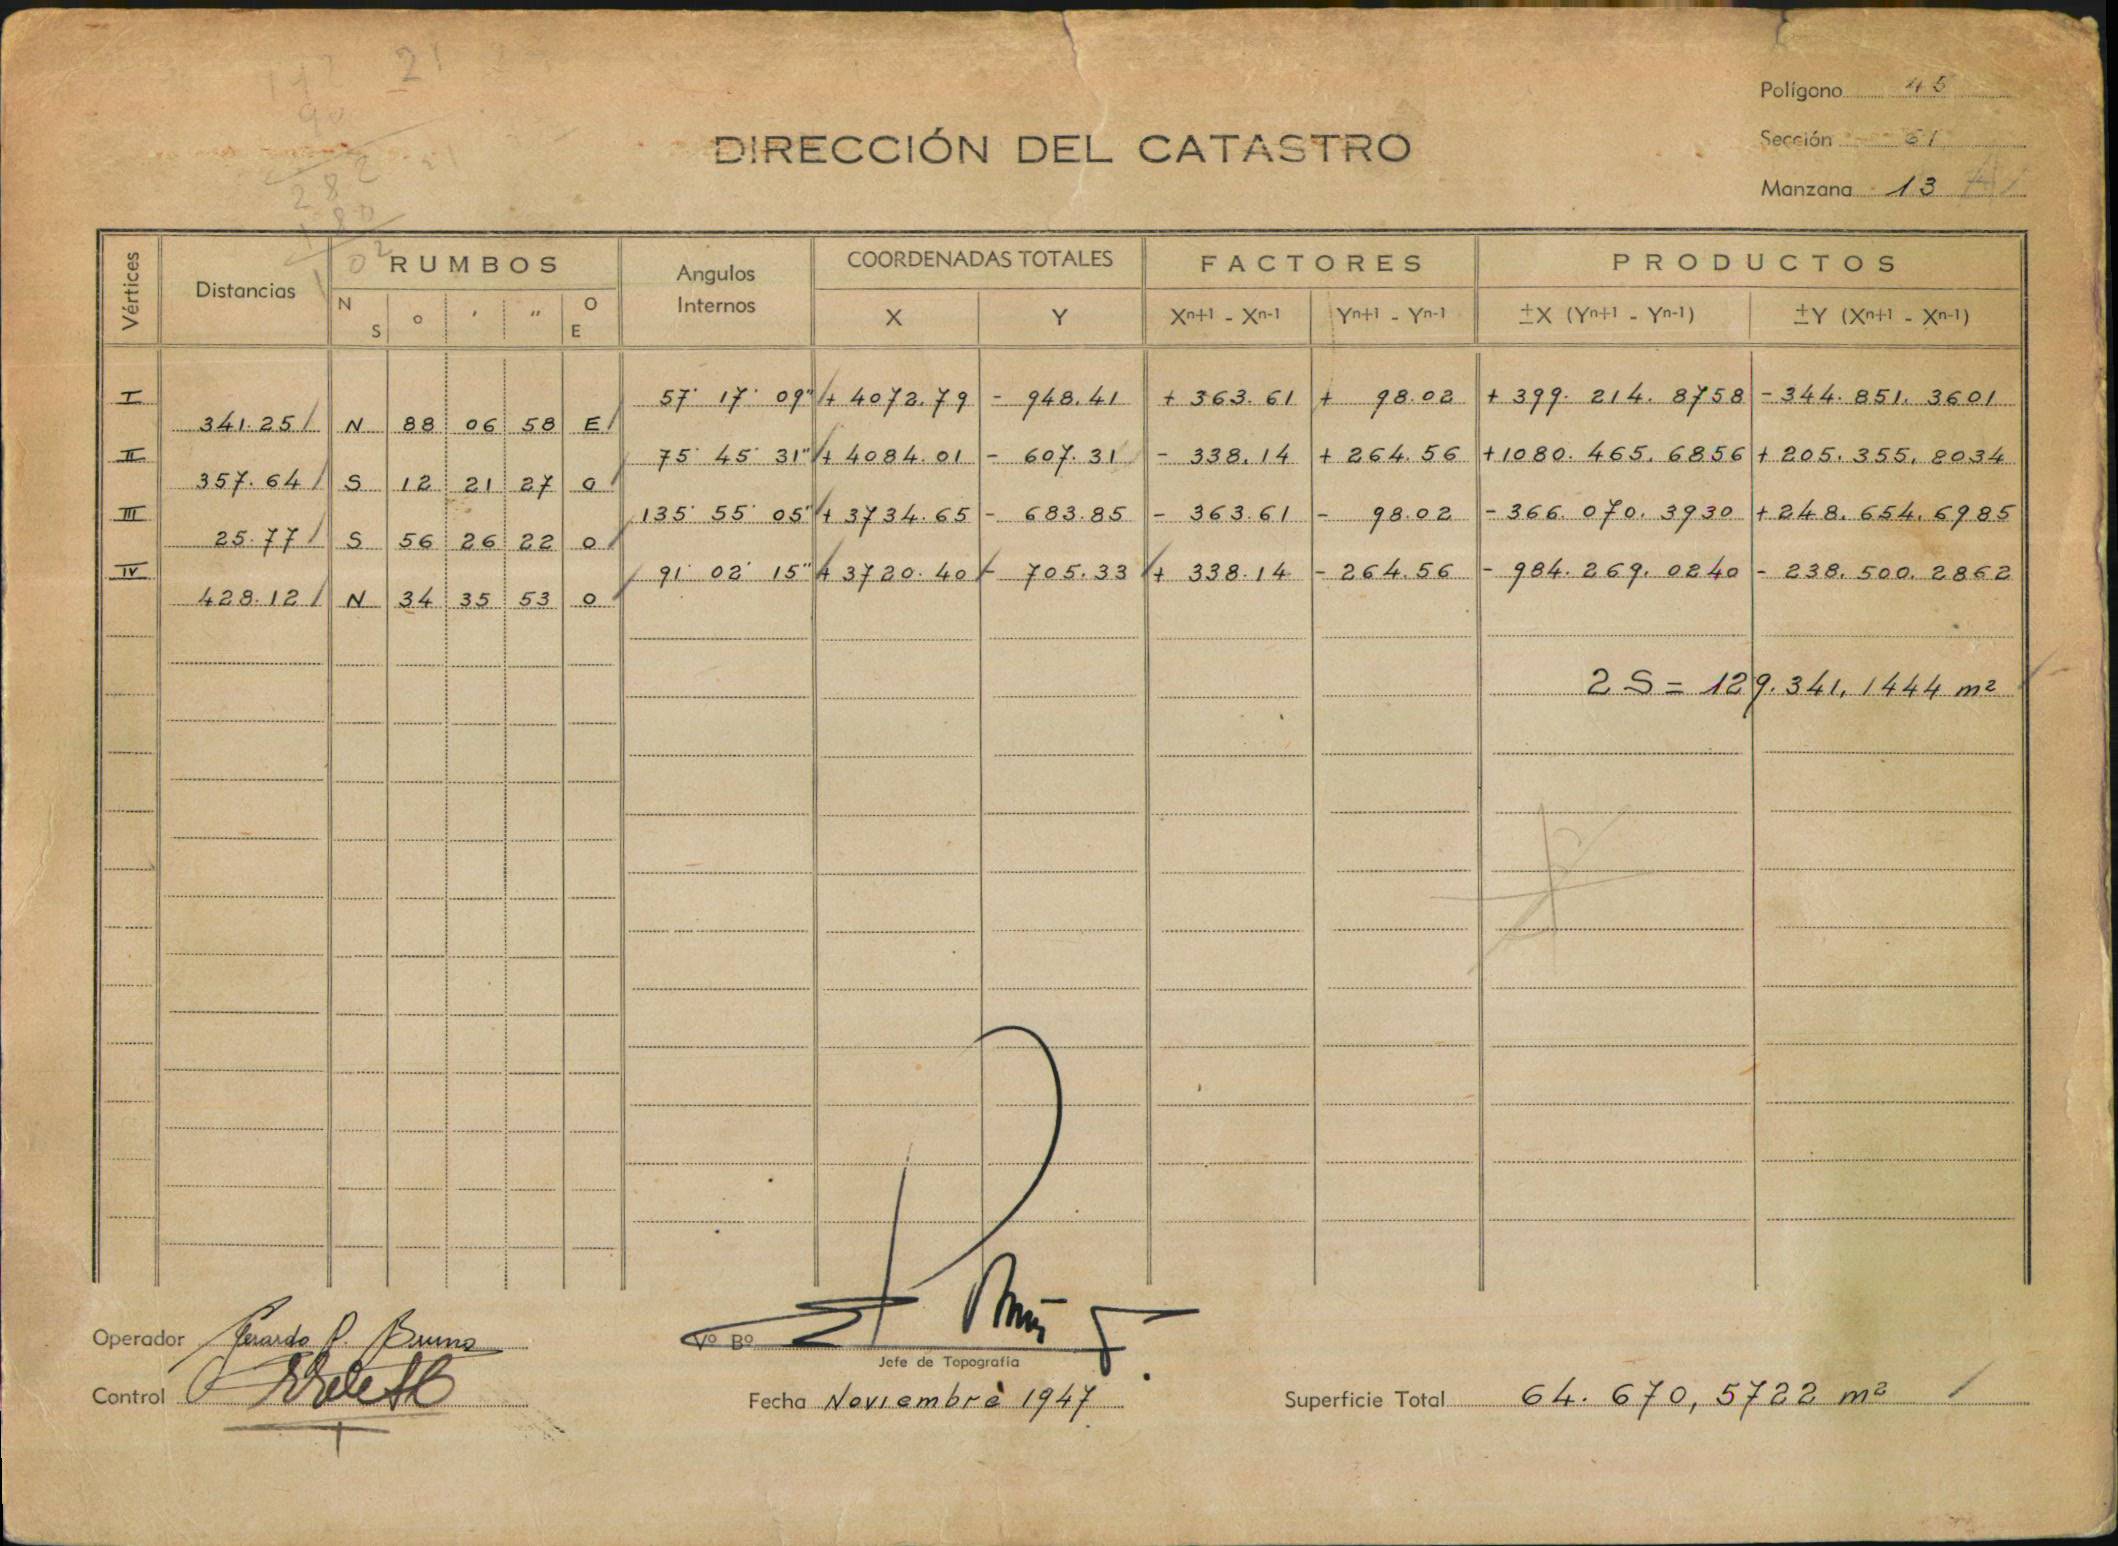 Polígono 45
DIRECCIÓN DEL CATASTRO
Sección 61
Manzana 13
Vértices Distancias RUMBOS Angulos Internos COORDENADAS TOTALES FACTORES PRODUCTOS
N S ° ' " O E X Y Xn+1 - Xn-1 Yn+1 - Yn-1 ±X (Yn+1 - Yn-1) ±Y (Xn+1 - Xn-1)
I 57° 17' 09" + 4072.79 - 948.41 + 363.61 + 98.02 + 399. 214. 8758 - 344. 851. 3601
341.25 N 88 06 58 E
II 75° 45' 31" + 4084.01 - 607.31 - 338.14 + 264.56 + 1080. 465. 6856 + 205. 355. 8034
357.64 S 12 21 27 O
III 135° 55' 05" + 3734.65 - 683.85 - 363.61 - 98.02 - 366. 070. 3930 + 248. 654. 6985
25.77 S 56 26 22 O
IV 91° 02' 15" + 3720.40 - 705.33 + 338.14 - 264.56 - 984. 269. 0240 - 238. 500. 2862
428.12 N 34 35 53 O
2 S = 129.341,1444 m²
Operador Gerardo P. Bruno
Vº Bº
Jefe de Topografía
Control
Fecha Noviembre 1947
Superficie Total 64. 670, 5722 m²